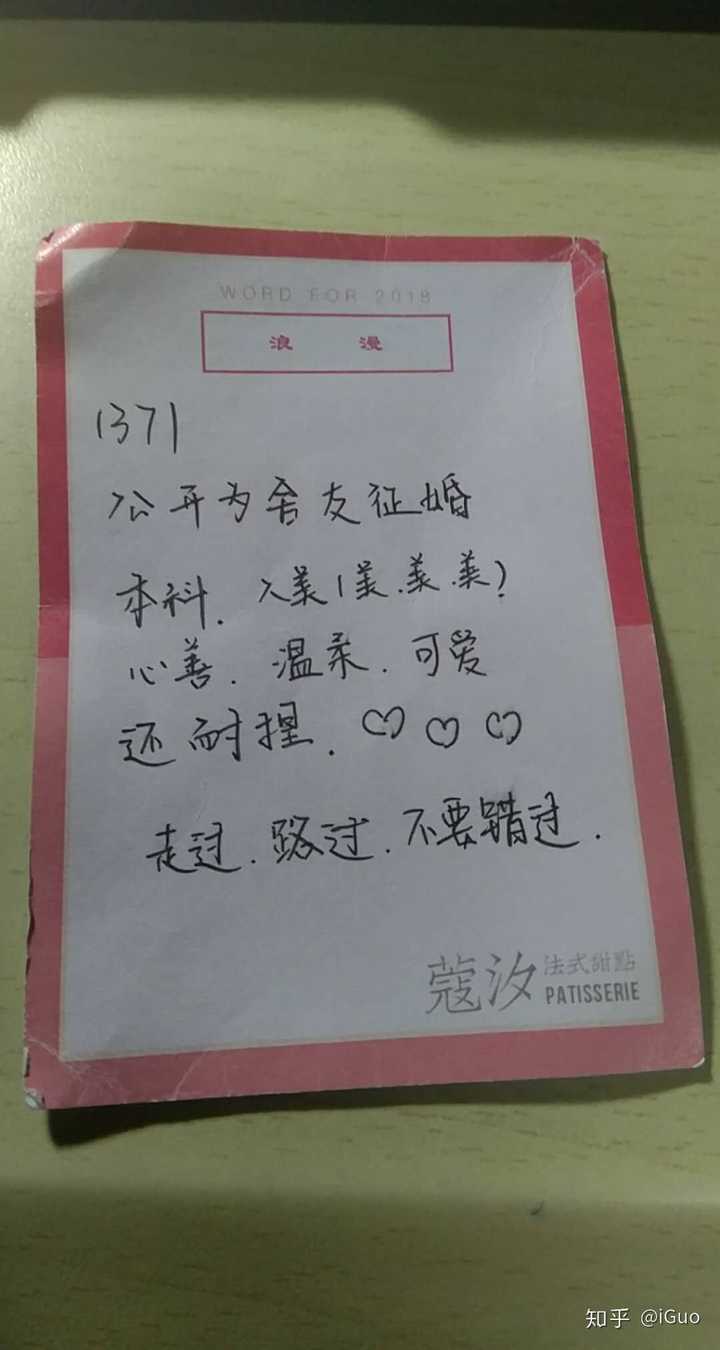 WORD FOR 2018
浪 漫
1371
公开为舍友征婚
本科. 人美(美.美.美)
心善. 温柔. 可爱
还耐捏. ♡ ♡ ♡
走过. 路过. 不要错过.
蔻汐 法式甜點
PATISSERIE
知乎 @iGuo